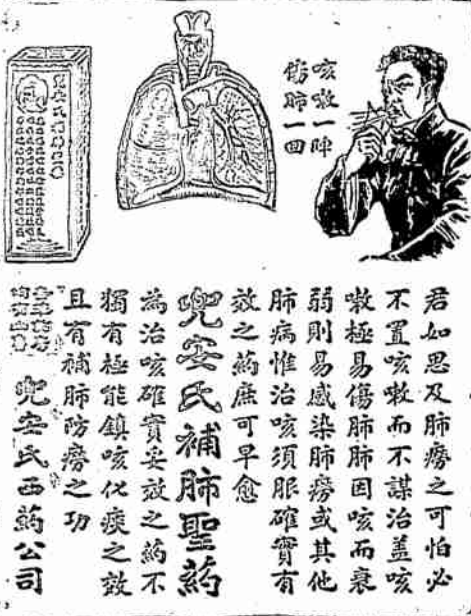 咳嗽一陣
傷肺一回
君如思及肺癆之可怕必
不置咳嗽而不謀治蓋咳
嗽極易傷肺肺因咳而衰
弱則易感染肺癆或其他
肺病惟治咳須服確實有
效之藥庶可早愈
兜安氏補肺聖藥
為治咳確實妥效之藥不
獨有極能鎮咳化痰之效
且有補肺防癆之功
兜安氏西藥公司